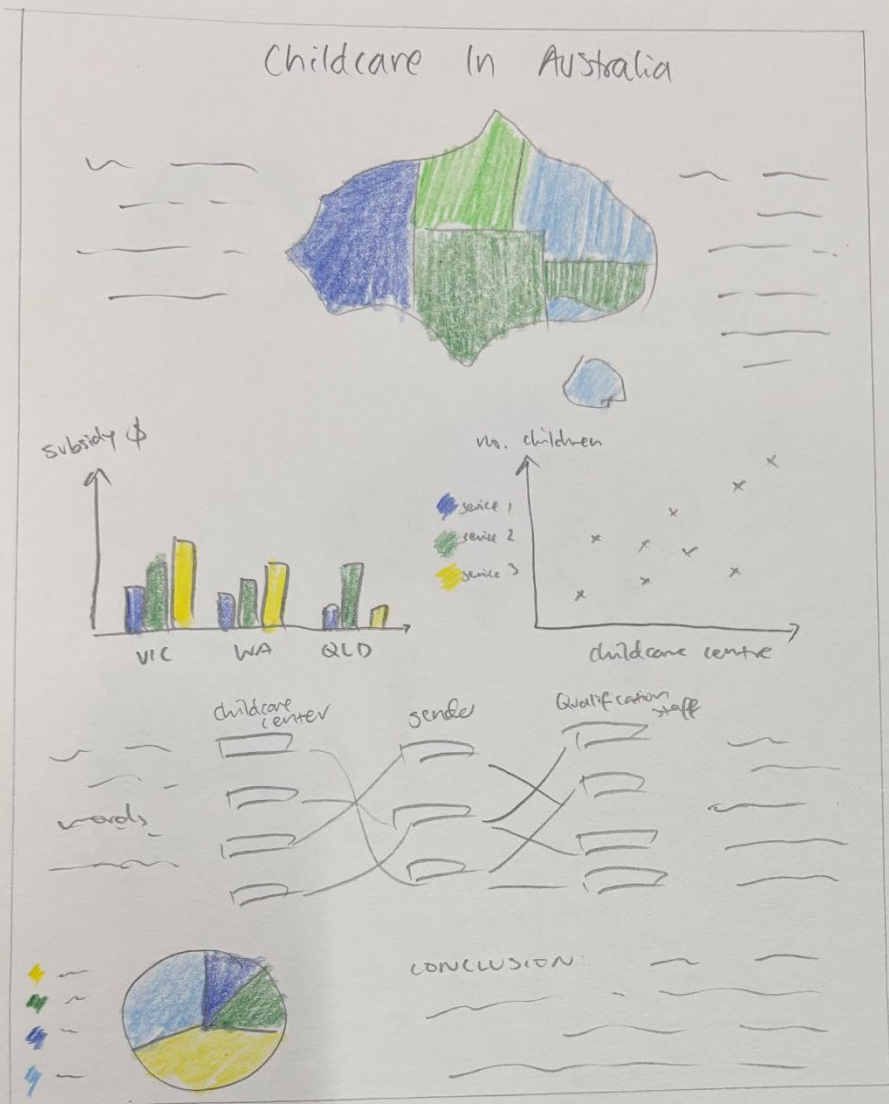 Childcare In Australia
subsidy $
no. children
service 1
service 2
service 3
VIC WA QLD
childcare centre
childcare
center
gender
Qualification
staff
words
CONCLUSION: